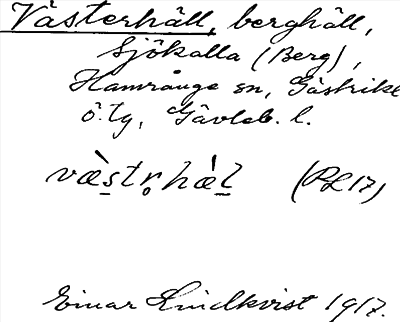 Västerhäll, berghäll,
Sjökalla (Berg),
Hamrånge sn, Gästrikl.
ö. tg, Gävleb. l.
væ̀s̲tr̥hæ̍l̲ (RL 17)
Einar Lindkvist 1917.